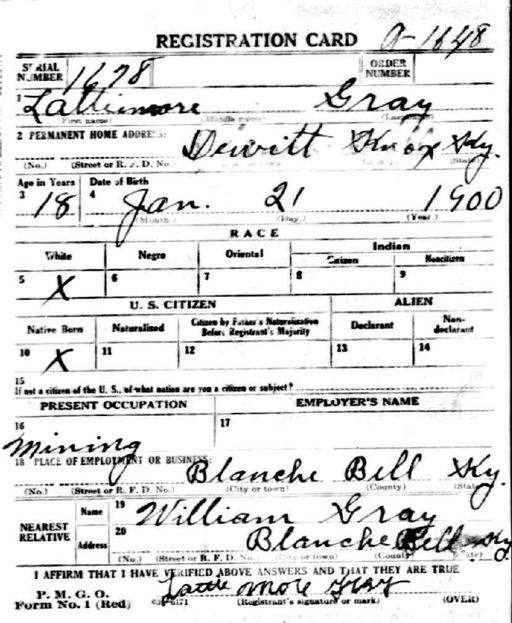 REGISTRATION CARD A-1648
SERIAL NUMBER 1678 ORDER NUMBER
1 Lattimore Gray
(First name) (Middle name) (Last name)
2 PERMANENT HOME ADDRESS:
Dewitt Knox Ky.
(No.) (Street or R. F. D. No.) (State)
Age in Years Date of Birth
3 18 4 Jan. 21 1900
(Month.) (Day.) (Year.)
RACE
White Negro Oriental Indian
Citizen Noncitizen
5 X 6 7 8 9
U. S. CITIZEN ALIEN
Native Born Naturalized Citizen by Father's Naturalization Before Registrant's Majority Declarant Non-declarant
10 X 11 12 13 14
15
If not a citizen of the U. S., of what nation are you a citizen or subject?
PRESENT OCCUPATION EMPLOYER'S NAME
16 17
Mining
18 PLACE OF EMPLOYMENT OR BUSINESS:
Blanche Bell Ky.
(No.) (Street or R. F. D. No.) (City or town) (County) (State)
NEAREST RELATIVE Name 19 William Gray
Address 20 Blanche Bell Ky
(No.) (Street or R. F. D. No.) (City or town) (County) (State)
I AFFIRM THAT I HAVE VERIFIED ABOVE ANSWERS AND THAT THEY ARE TRUE
P. M. G. O.
Form No. 1 (Red) Lattie more Gray
(Registrant's signature or mark) (OVER)